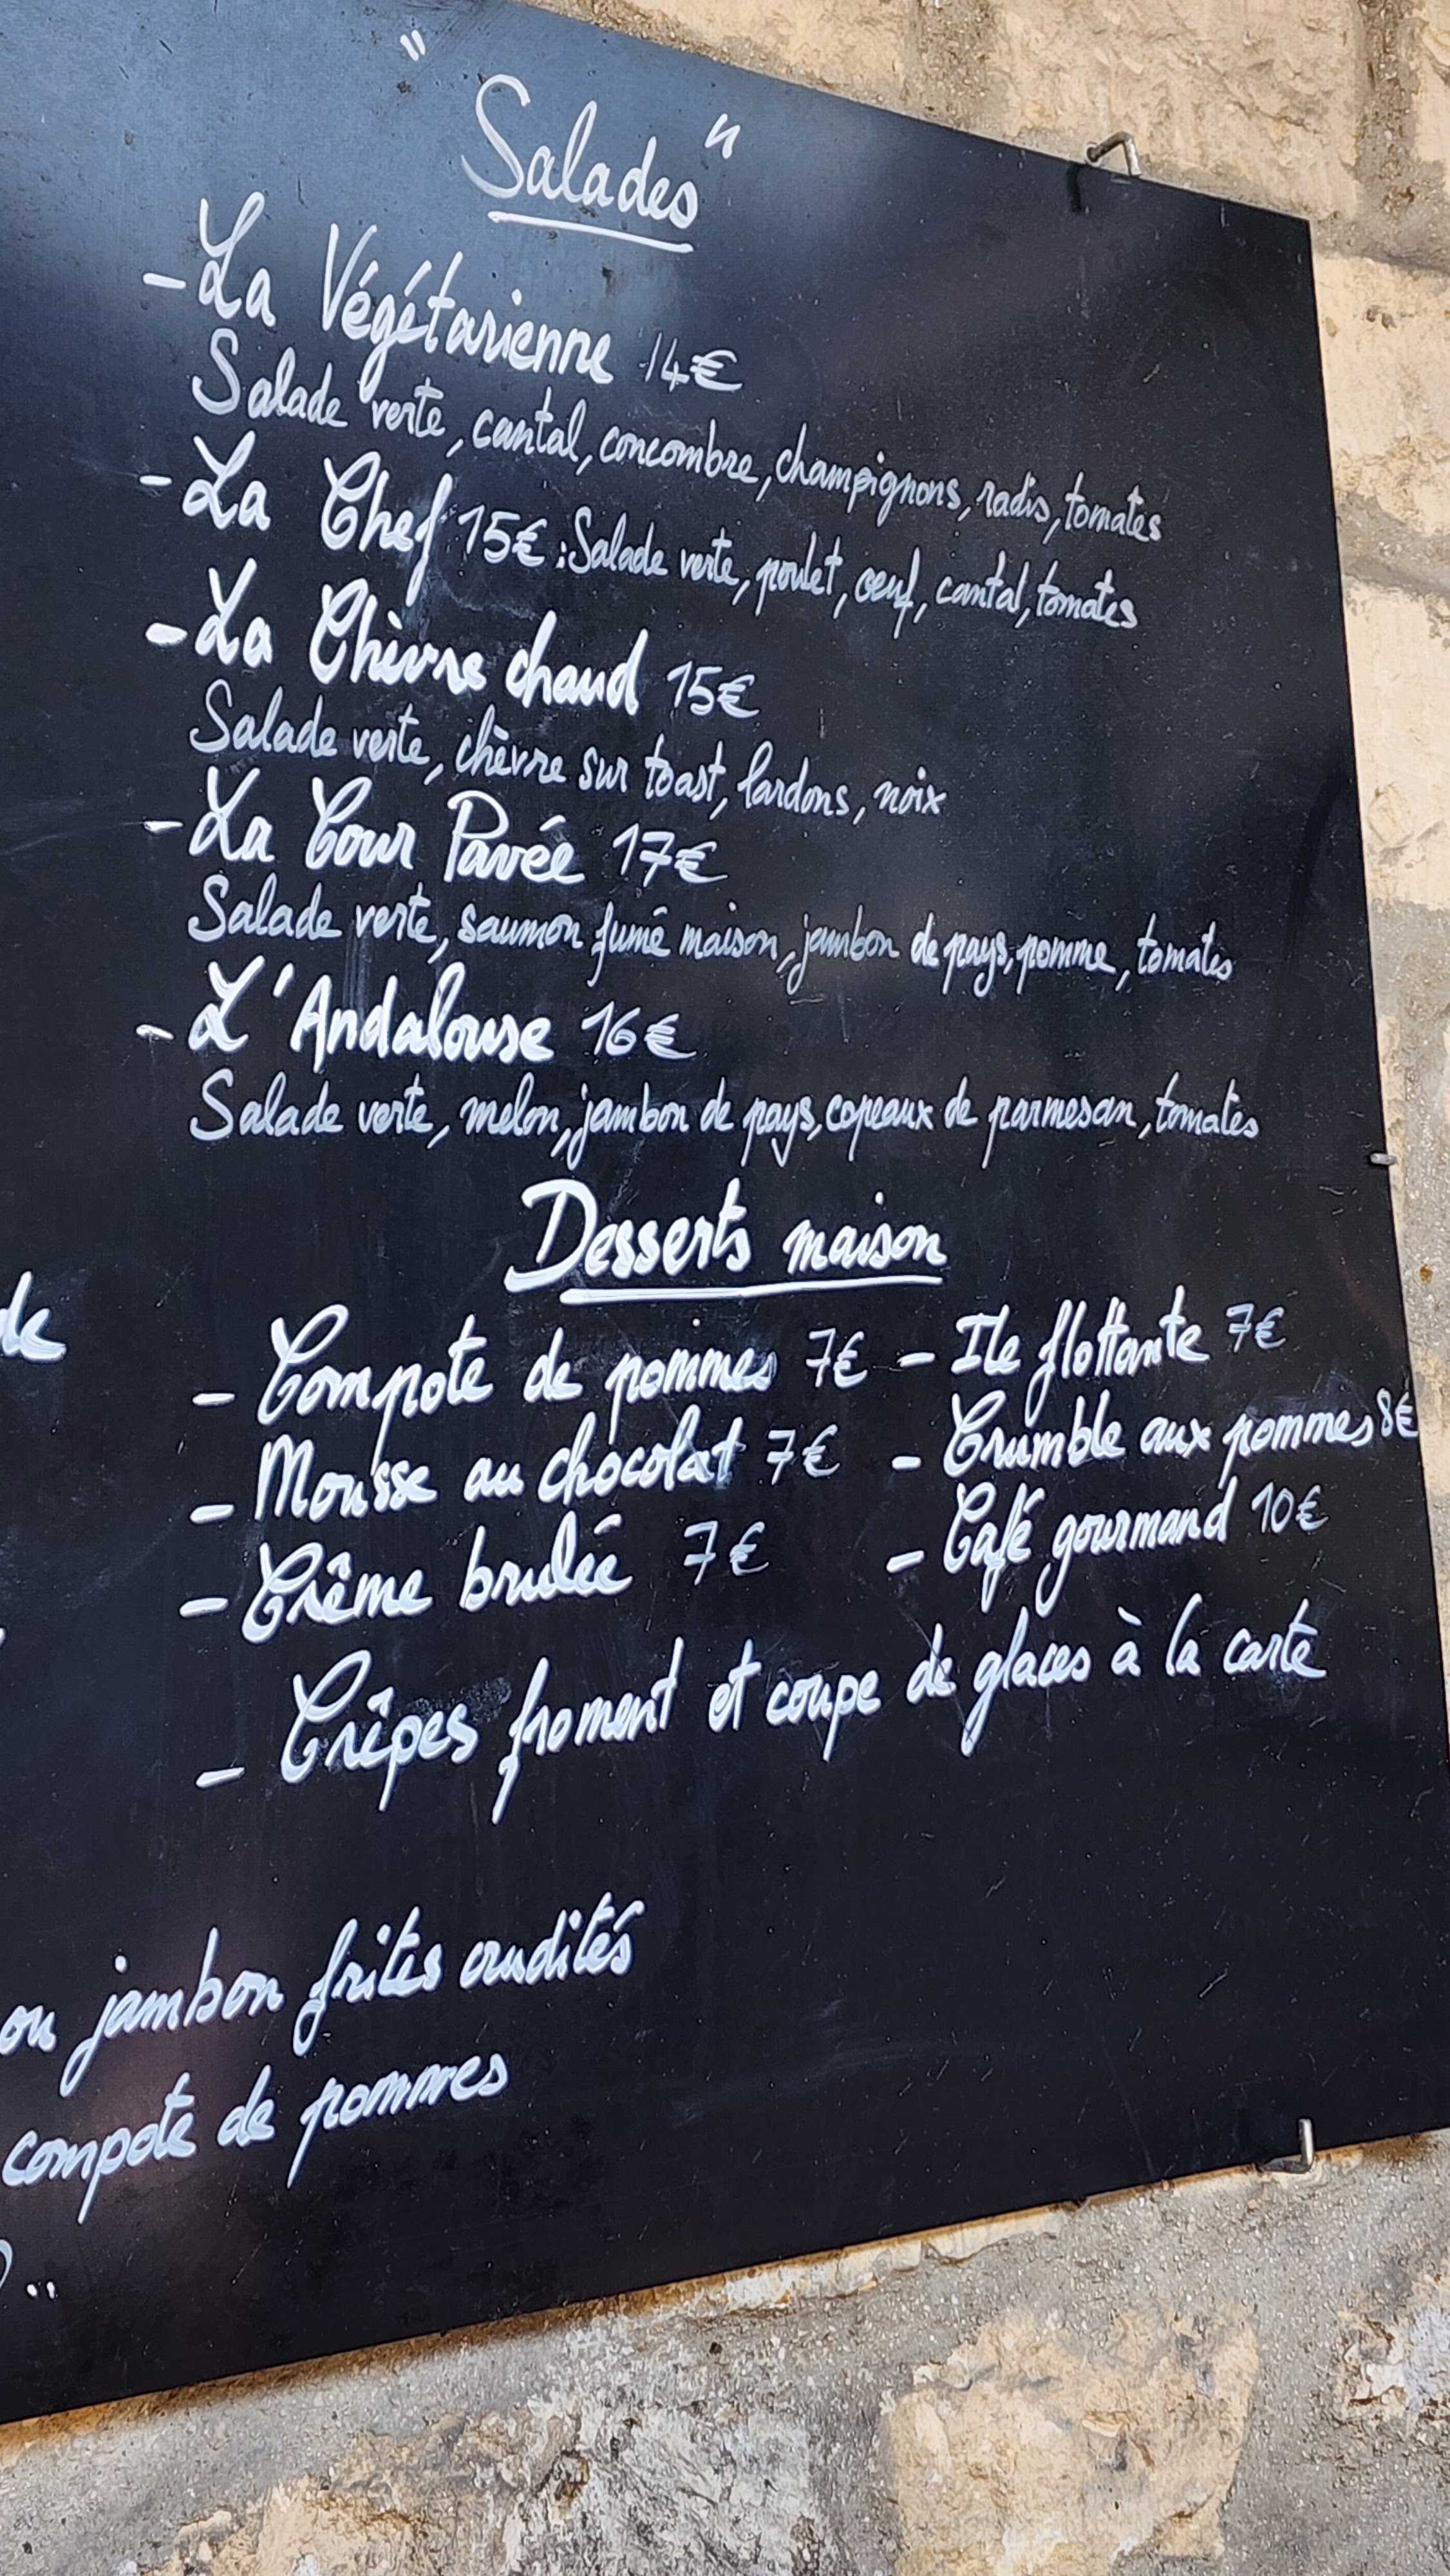 "Salades"
- La Végétarienne 14€
Salade verte, cantal, concombre, champignons, radis, tomates
- La Chef 15€ : Salade verte, poulet, oeuf, cantal, tomates
- La Chèvre chaud 15€
Salade verte, chèvre sur toast, lardons, noix
- La Cour Pavée 17€
Salade verte, saumon fumé maison, jambon de pays, pomme, tomates
- L'Andalouse 16€
Salade verte, melon, jambon de pays, copeaux de parmesan, tomates
Desserts maison
- Compote de pommes 7€ - Ile flottante 7€
- Mousse au chocolat 7€ - Crumble aux pommes 8€
- Crême brulée 7€ - Café gourmand 10€
- Crêpes froment et coupe de glaces à la carte
de
ou jambon frites crudités
compote de pommes